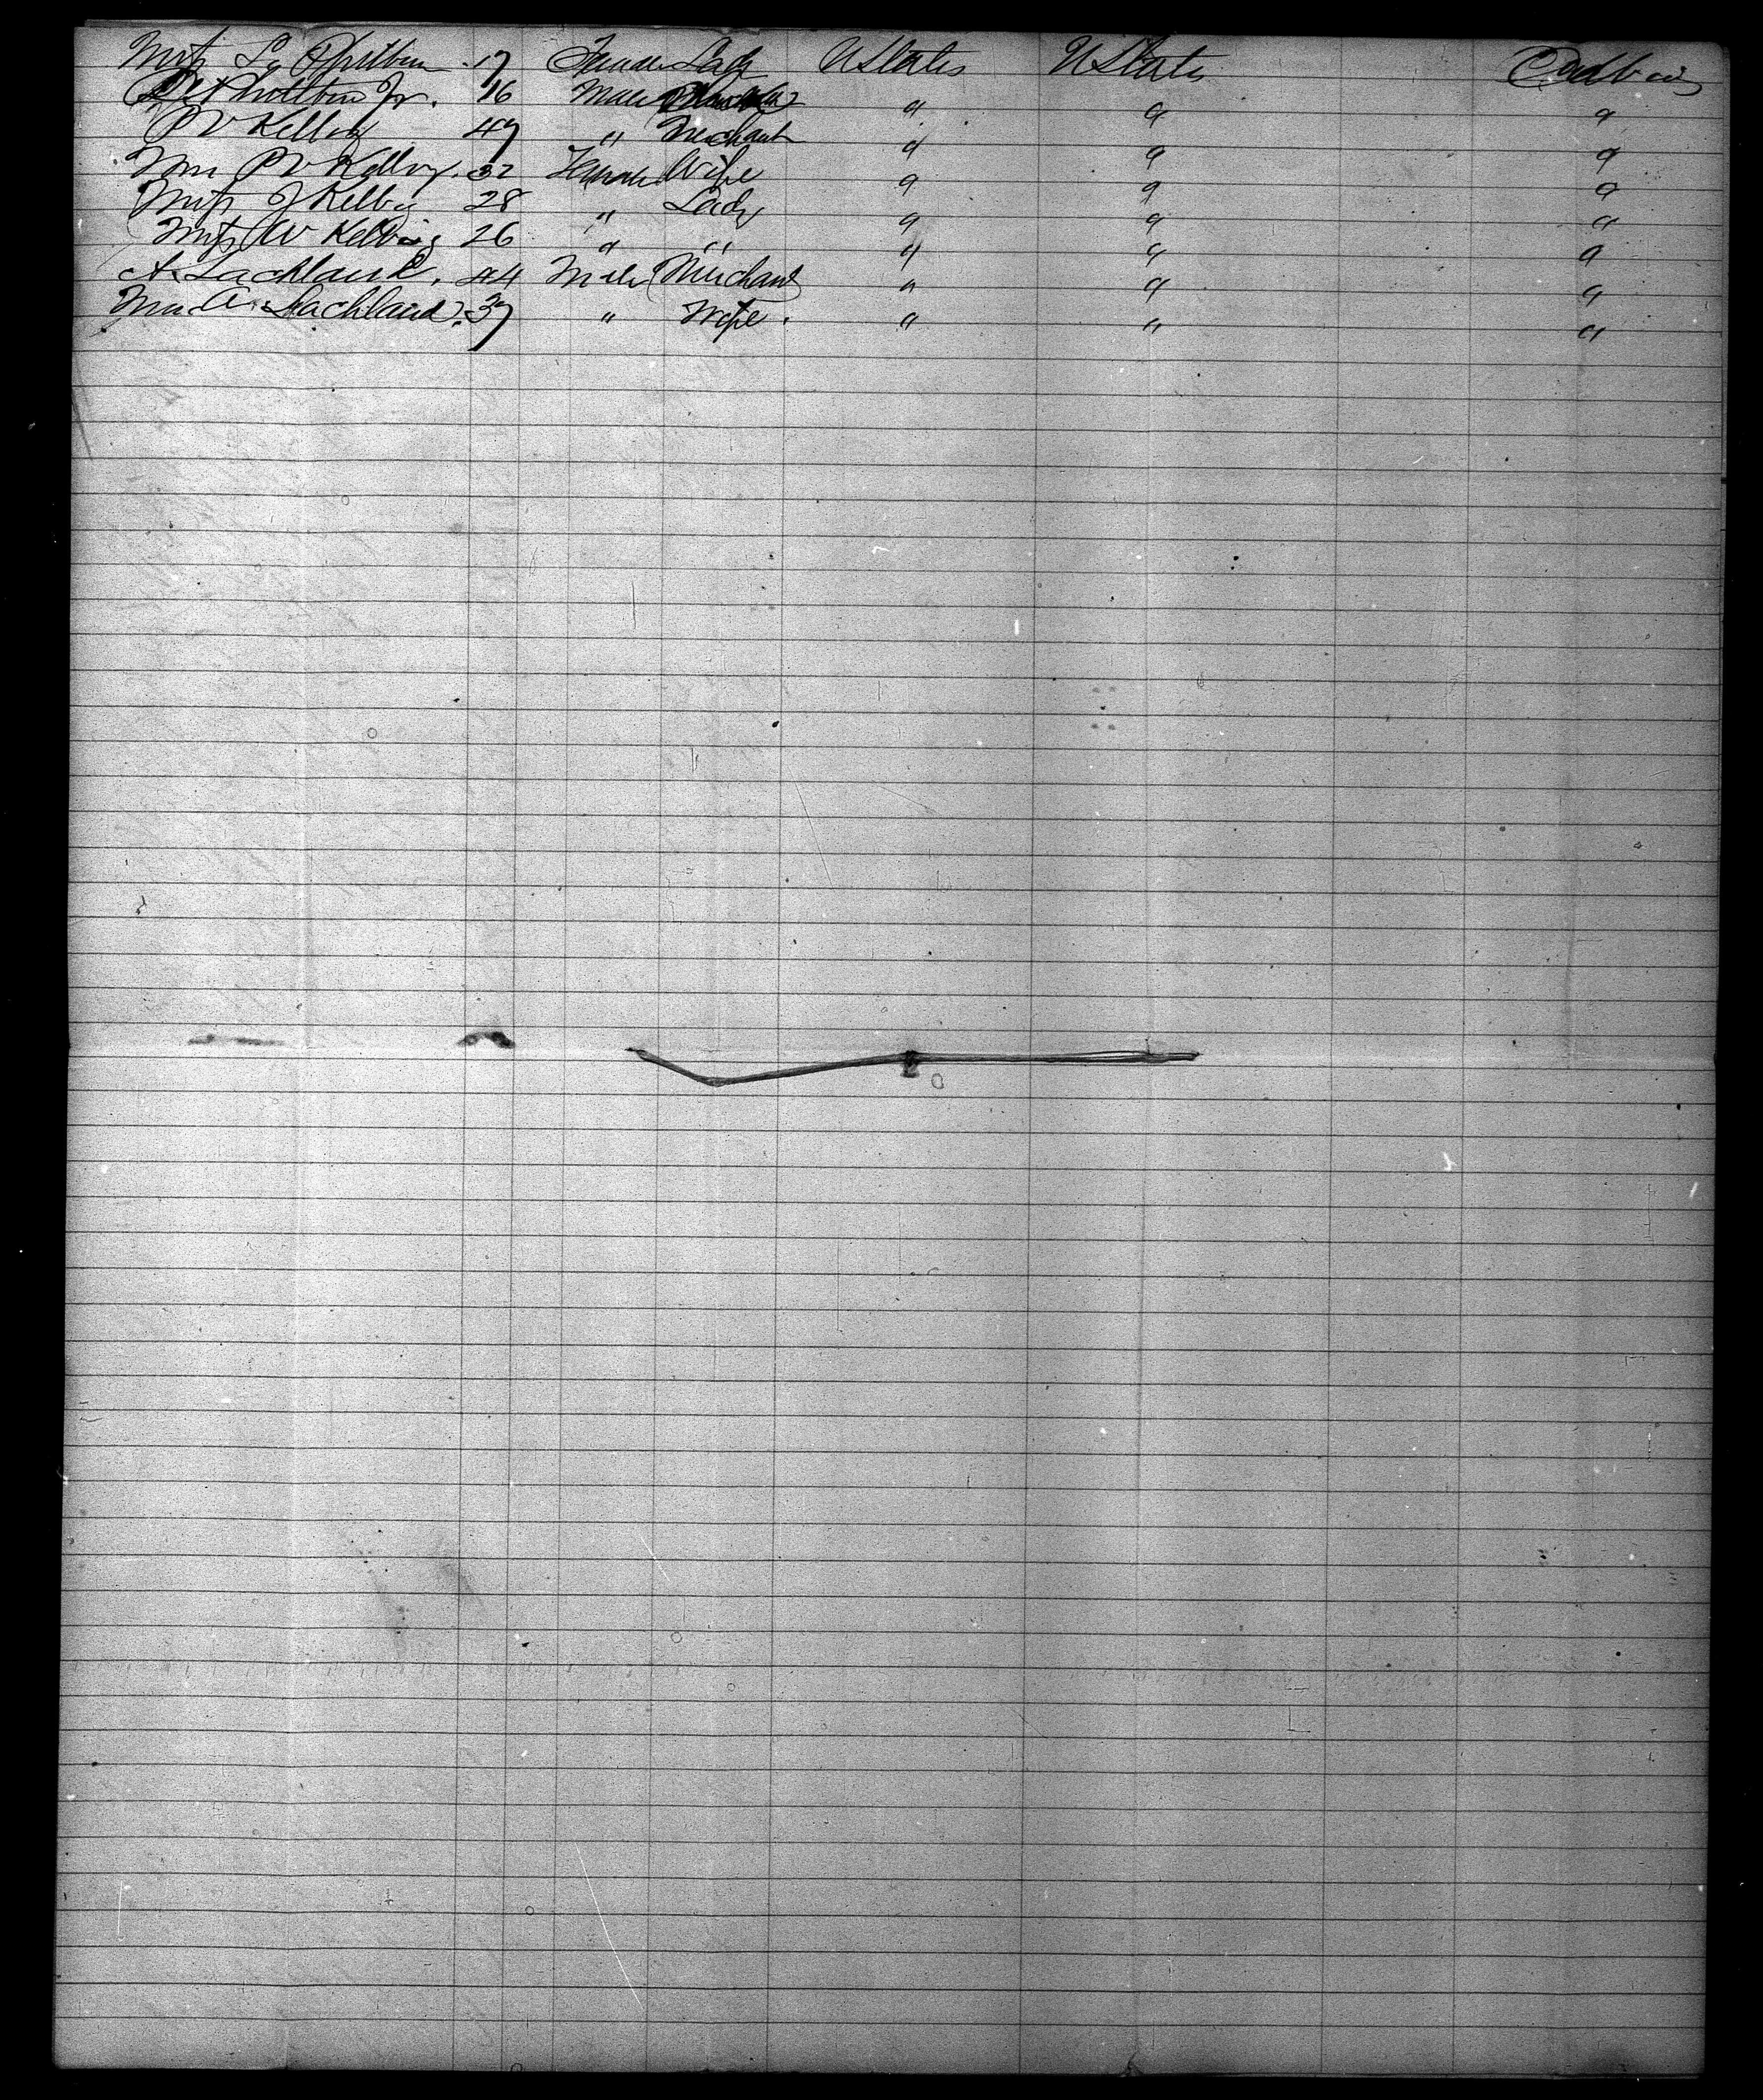 Miss L Philbin 17 Female Lady U States U States
Philbin Jr. 16 Male " " "
P V Kelley 47 " Merchant " " "
Mrs P V Kelley. 32 Female Wife " " "
Miss J Kelley 28 " Lady " " "
Miss W Kelley 26 " " " " "
A. Lachland. 44 Male Merchant " " "
Mrs A. Lachland. 37 " Wife. " " "